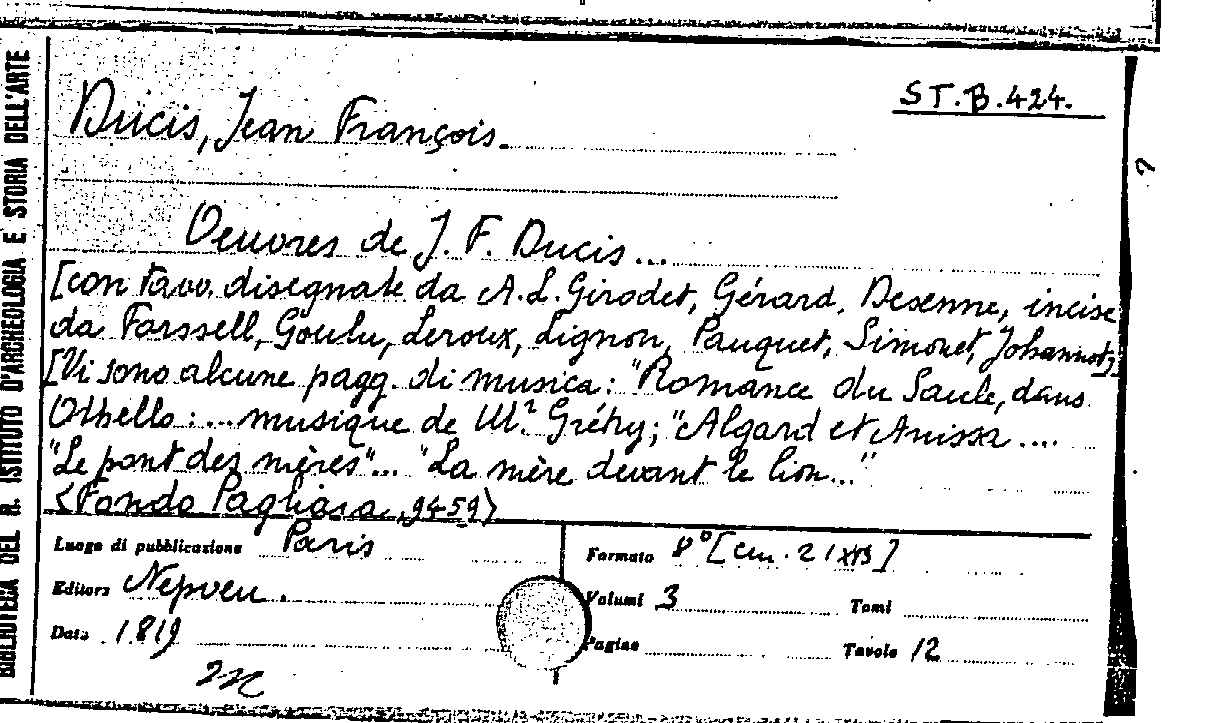 BIBLIOTECA DEL R. ISTITUTO D'ARCHEOLOGIA E STORIA DELL'ARTE
ST.B.424.
Ducis, Jean François.
Oeuvres de J. F. Ducis...
[con tavv. disegnate da A.L. Girodet, Gérard, Desenne, incise
da Forssell, Goulu, Leroux, Lignon, Pauquet, Simonet, Johannot];
[Vi sono alcune pagg. di musica: "Romance du Saule, dans
Othello: ... musique de Mr. Grétry; "Algard et Anissa ....
"Le pont des mères"... "La mère devant le lion..."
<Fondo Pagliara, 9459>
Luogo di pubblicazione Paris
Formato 8° [cm. 21x13]
Editore Nepveu.
Volumi 3 Tomi
Data 1819
Pagine Tavole 12